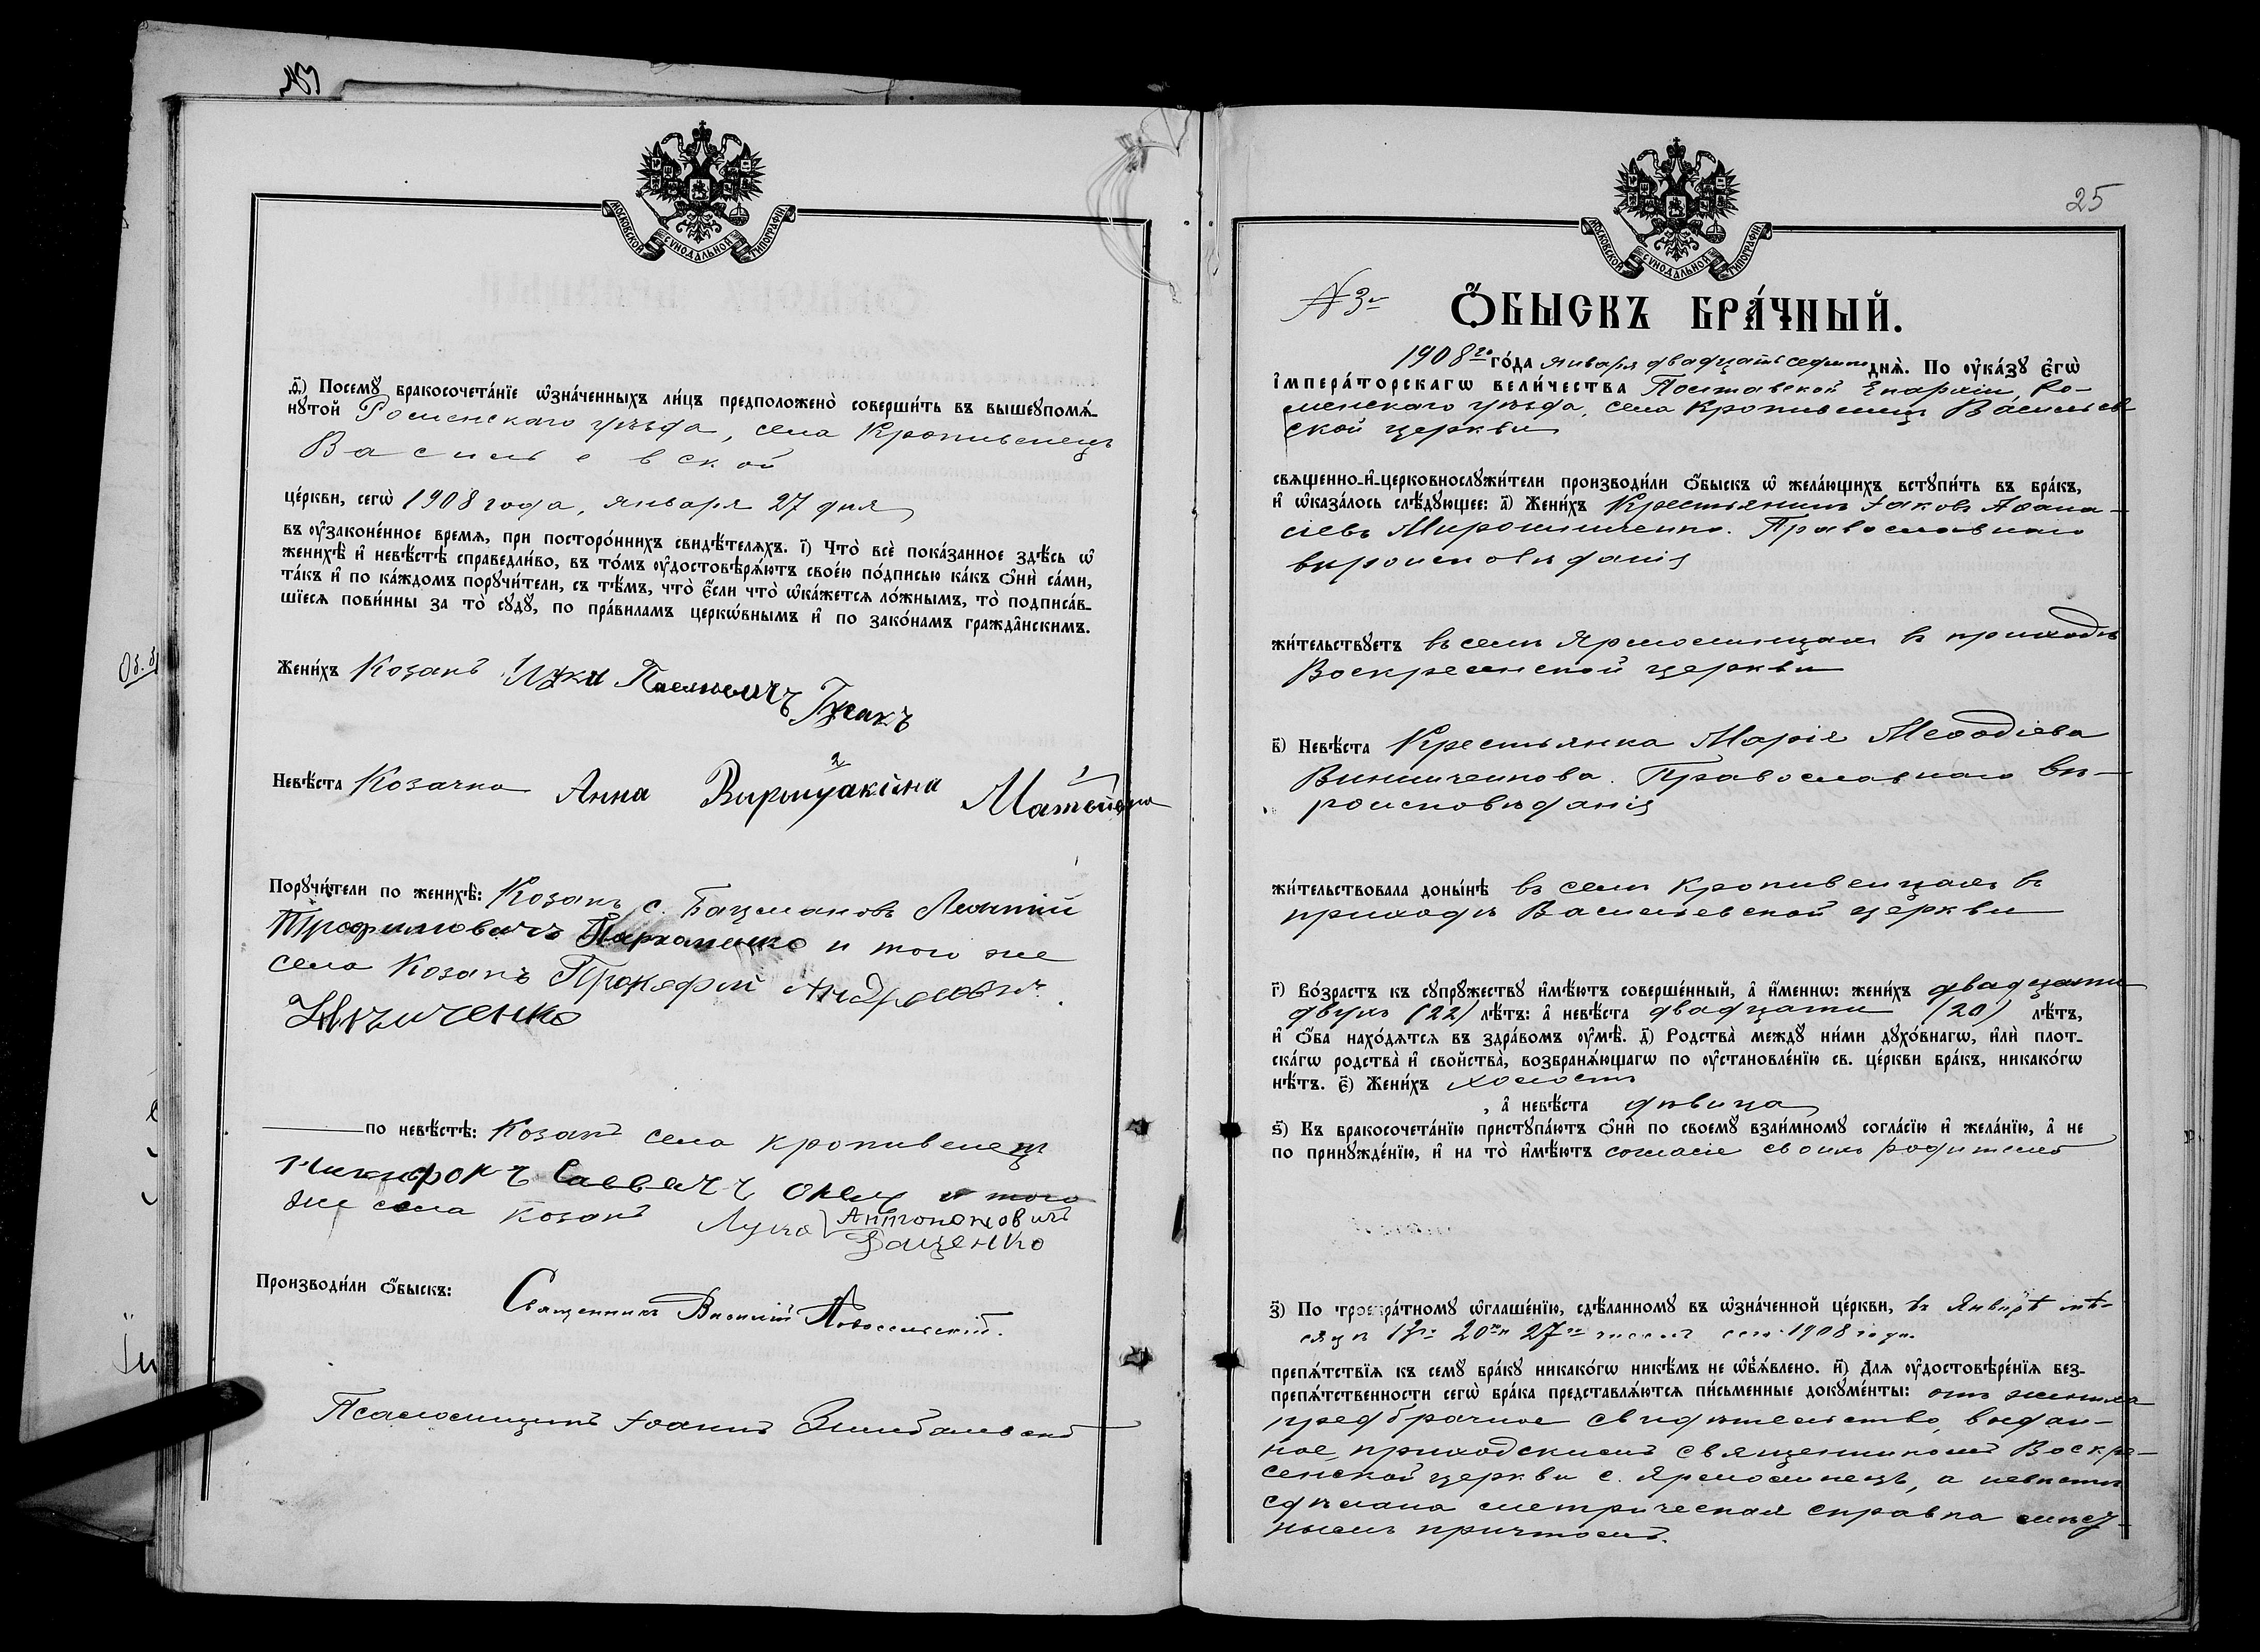 МОСКОВСКОЙ СѴНОДАЛЬНОЙ ТИПОГРАФІИ
д҃) Посемꙋ̀ бракосочета́нїе ѡ҆зна́ченныхъ ли́цъ предположено̀ соверши́ть въ вышеупомѧ́-
нꙋтой Роменскаго уѣзда, села Кропивенецъ
Васильевской
це́ркви, сегѡ̀ 1908 года, января 27 дня
въ ᲂу҆законе́нное времѧ, при посторо́ннихъ свидѣ́телѧхъ. і҃) Что̀ всѐ пока́занное здѣ́сь ѡ҆
женихѣ̀ и҆ невѣ́стѣ справедли́во, въ то́мъ ᲂу҆достовѣрѧ́ютъ свое́ю по́дписью ка́къ ѻ҆нѝ са́ми,
та́къ и҆ по ка́ждомъ порꙋчи́тели, съ тѣ́мъ, что̀ є҆́сли что̀ ѡ҆ка́жетсѧ ло́жнымъ, то̀ подписа́в-
шїесѧ пови́нны за то̀ сꙋдꙋ̀, по пра́виламъ церкѡ́внымъ и҆ по зако́намъ гражда̂нскимъ.
Жени́хъ Козакъ
Невѣ́ста Козачка Анна
Порꙋчи́тели по женихѣ̀: Козакъ с. Бацмановъ
Трофимовичъ Пархоменко и того же
села Козакъ Прокофій Андреевич
по невѣ́стѣ: Козакъ села Кропивенецъ
Саввичъ и того
же села козакъ Лука Антонович
Даценко
Производи́ли ѻ҆́быскъ: Священникъ Василій Новосельскій.
Псаломщикъ Іоаннъ
25
МОСКОВСКОЙ СѴНОДАЛЬНОЙ ТИПОГРАФІИ
№ 3
Ѻ҆́БЫСКЪ БРА́ЧНЫЙ.
1908го го́да января двадцать седьм днѧ̀. По ᲂу҆ка́зꙋ є҆гѡ̀
и҆мпера́торскагѡ вели́чества Полтавской Епархіи, Ро-
менскаго уѣзда, села Кропивенецъ Васильев-
ской церкви
свѧщенно-и҆-церковнослꙋжи́тели производи́ли ѻ҆́быскъ ѡ҆ жела́ющихъ встꙋпи́ть въ бра́къ,
и҆ ѡ҆каза́лось слѣ́дꙋющее: а҃) Жени́хъ Крестьянинъ Іаковъ Аѳана-
сіевъ Мирошниченко. Православнаго
вѣроисповѣданія
жи́тельствꙋетъ въ селѣ Ярмолинцахъ въ приходѣ
Воскресенской церкви
в҃) Невѣ́ста Крестьянка Марія Меѳодіева
Винниченкова. Православнаго вѣ-
роисповѣданія
жи́тельствовала доны́нѣ въ селѣ Кропивенцахъ въ
приходѣ Васильевской церкви
г҃) Во́зрастъ къ сꙋпрꙋ́жествꙋ и҆мѣ́ютъ соверше́нный, а҆ и҆́меннѡ: жени́хъ двадцати
двухъ (22) лѣ́тъ: а҆ невѣ́ста двадцати (20) лѣ́тъ,
и҆ ѻ҆́ба нахо́дѧтсѧ въ здра́вомъ ᲂу҆мѣ̀. д҃) Родства̀ междꙋ̀ ни́ми дꙋхо́внагѡ, и҆лѝ плот-
ска́гѡ родства̀ и҆ сво́йства̀, возбранѧ́ющагѡ по ᲂу҆становле́нїю св. це́ркви бра́къ, никако́гѡ
нѣ́тъ. є҃) Жени́хъ холостъ
, а҆ невѣ́ста дѣвица
ѕ҃) Къ бракосочета́нїю пристꙋпа́ютъ ѻ҆нѝ по своемꙋ̀ взаи́мномꙋ согла́сїю и҆ жела́нїю, а҆ не
по принꙋжде́нїю, и҆ на то̀ и҆мѣ́ютъ согласіе своихъ родителей
з҃) По троекра́тномꙋ ѡ҆глаше́нїю, сдѣ́ланномꙋ въ ѡ҆зна́ченной це́ркви, въ Январѣ мѣ-
сяцѣ 20го 27го сего 1908 года.
препѧ́тствїѧ къ семꙋ̀ бра́кꙋ никако́гѡ никѣ́мъ не ѡ҆б̾ѧ́влено. и҃) Длѧ ᲂу҆достовѣре́нїѧ без-
препѧ́тственности сегѡ̀ бра́ка представлѧ́ютсѧ пи́сьменные докꙋме́нты: отъ жениха
предбрачное свидѣтельство, выдан-
ное приходскимъ священникомъ Воскре-
сенской церкви с. Ярмолинецъ, а невѣстѣ
сдѣлана метрическая справка мѣст-
нымъ причтомъ.